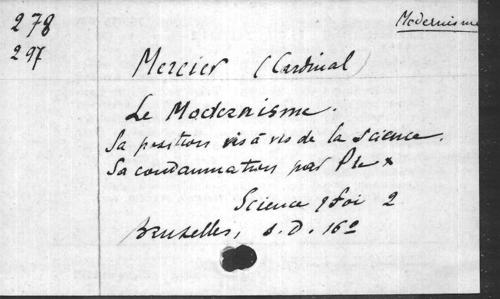 278
297
Modernisme
Mercier (Cardinal)
Le Modernisme.
Sa position vis à vis de la science.
Sa condamnation par Pie X
Science & foi 2
Bruxelles, s. D. 16º